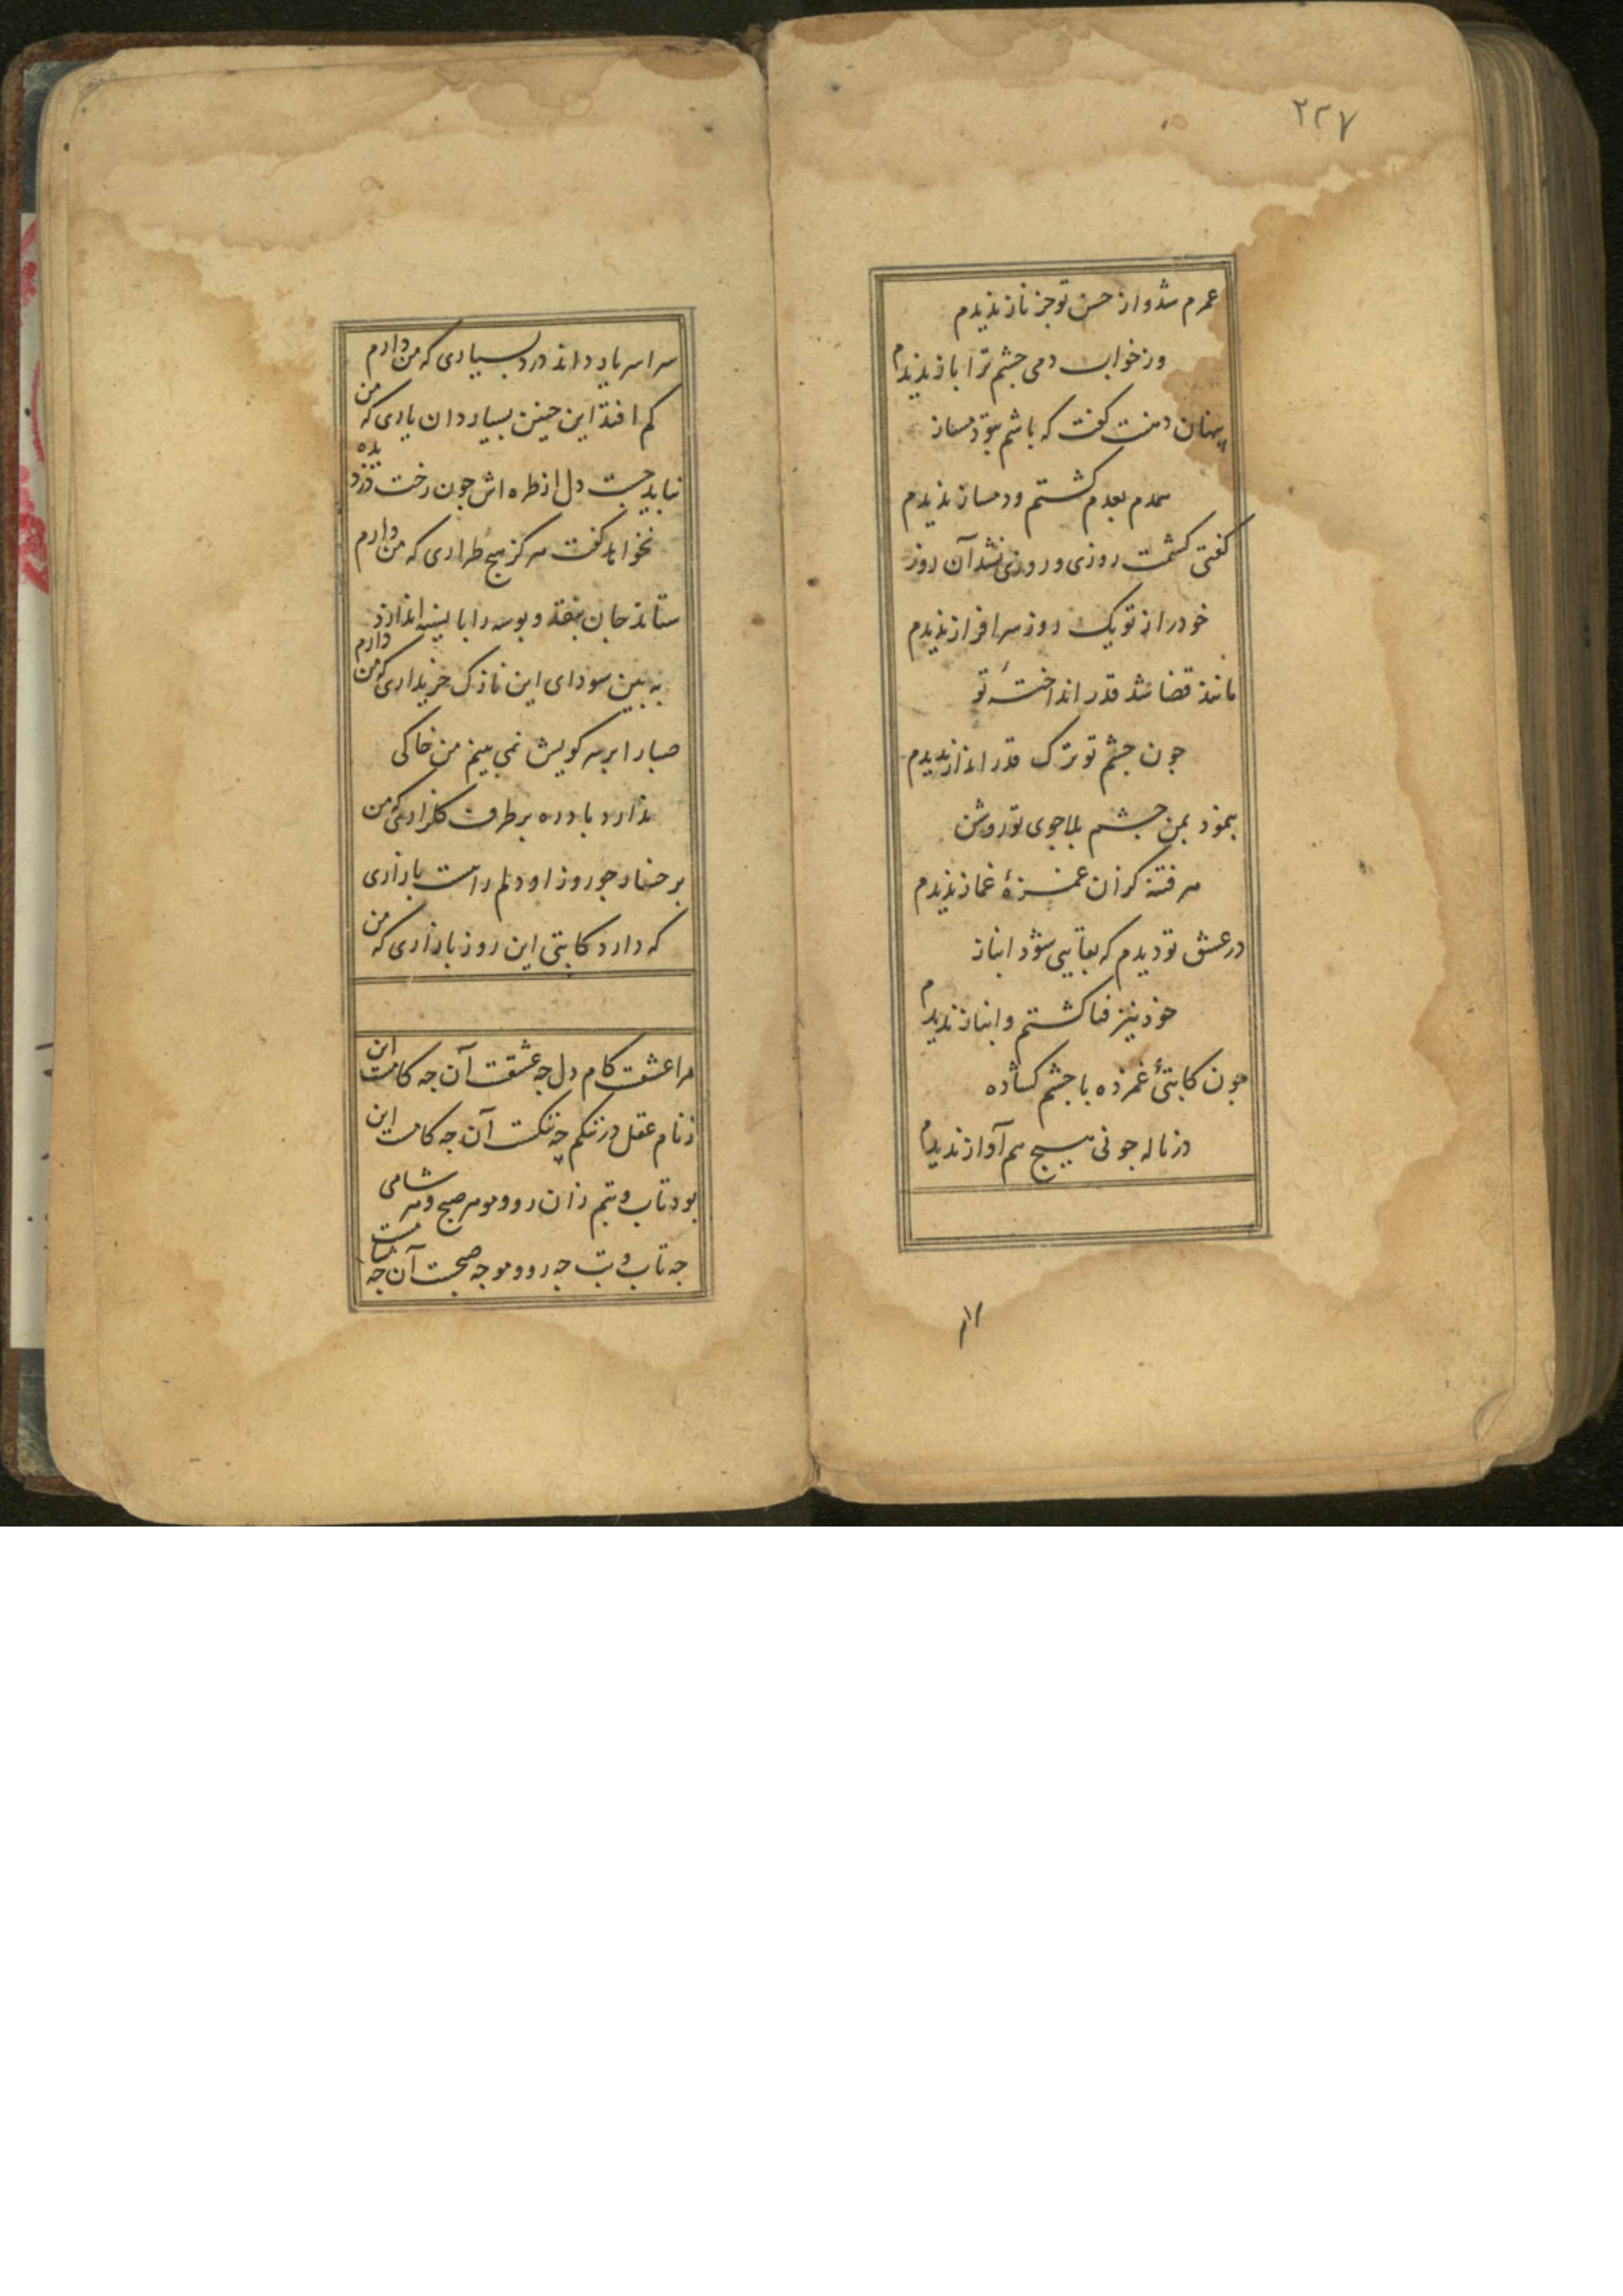 ۲۲۷
عمرم شد و از حسن تو جز ناز ندیدم
وز خواب دمی جشم ترا باز ندیدم
پنهان دهنت کفت که باشم بتو دمساز
همدم بعدم کشتم و دمساز ندیدم
کفتی کشمت روزی و روزی نشد آن روز
خود را ز تو یک روز سرافراز ندیدم
مانند قضا شد قدر انداختهٔ تو
جون جشم تو ترک قدر انداز ندیدم
بنمود بمن جشم بلاجوی تو روشن
هر فتنه کزان غمزهٔ غماز ندیدم
در عشق تو دیدم که بقایی شود انباز
خود نیز فنا کشتم و انباز ندیدم
جون کاتبی غمزده با جشم کشاده
در ناله جو نی هیج هم آواز ندیدم
سراسر یار داند درد بسیاری که من دارم
کم افتد این جنین بسیار دان یاری که من
نباید جست دل از طره اش جون رخت دزدیده
نخواهد کفت هرکز هیج طراری که من دارم
ستاند جان بنقد و بوسه را با نسیه اندازد
به بین سودای این نازک خریداری که من دارم
صبا را بر سر کویش نمی بینم من خاکی
ندارد باد ره بر طرف کلزاری که من
بر خسار جو روز او دلم راست بازاری
که دارد کاتبی این روز بازاری که من
مرا عشقت کام دل جه عشقت آن جه کامست این
ز نام عقل در ننکم جه ننکست آن جه نامست این
بود تاب و تبم زان رو و مو هر صبح و هر شامی
جه تاب و تب جه رو و مو جه صبحست آن جه شامست